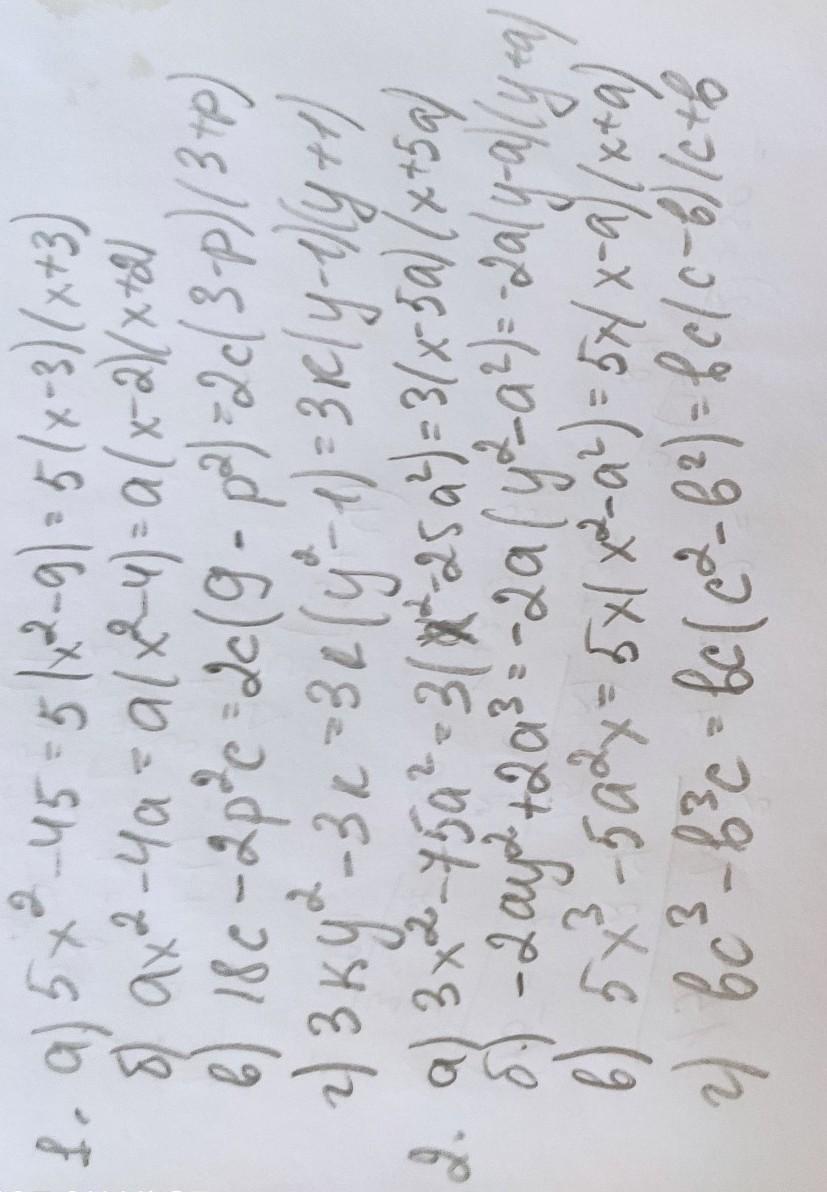 1. а) 5x²-45=5(x²-9)=5(x-3)(x+3)
б) ax²-4a=a(x²-4)=a(x-2)(x+2)
в) 18c-2p²c=2c(9-p²)=2c(3-p)(3+p)
г) 3ky²-3k=3k(y²-1)=3k(y-1)(y+1)
2. а) 3x²-75a²=3(x²-25a²)=3(x-5a)(x+5a)
б) -2ay²+2a³=-2a(y²-a²)=-2a(y-a)(y+a)
в) 5x³-5a²x=5x(x²-a²)=5x(x-a)(x+a)
г) bc³-b³c=bc(c²-b²)=bc(c-b)(c+b